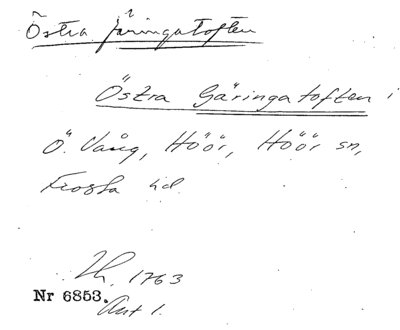 Östra Järingatoften
Östra Gäringatoften i
Ö. Vång, Höör, Höör sn,
Frosta hd.
1763
Nr 6853.
Akt 1.